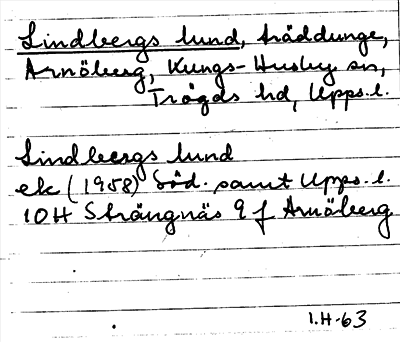 Lindbergs lund, träddunge,
Arnöberg, Kungs-Husby sn,
Trögds hd, Upps.l.
Lindbergs lund
ek (1958) Söd. samt Upps.l.
10H Strängnäs 9 f Arnöberg
I.H-63